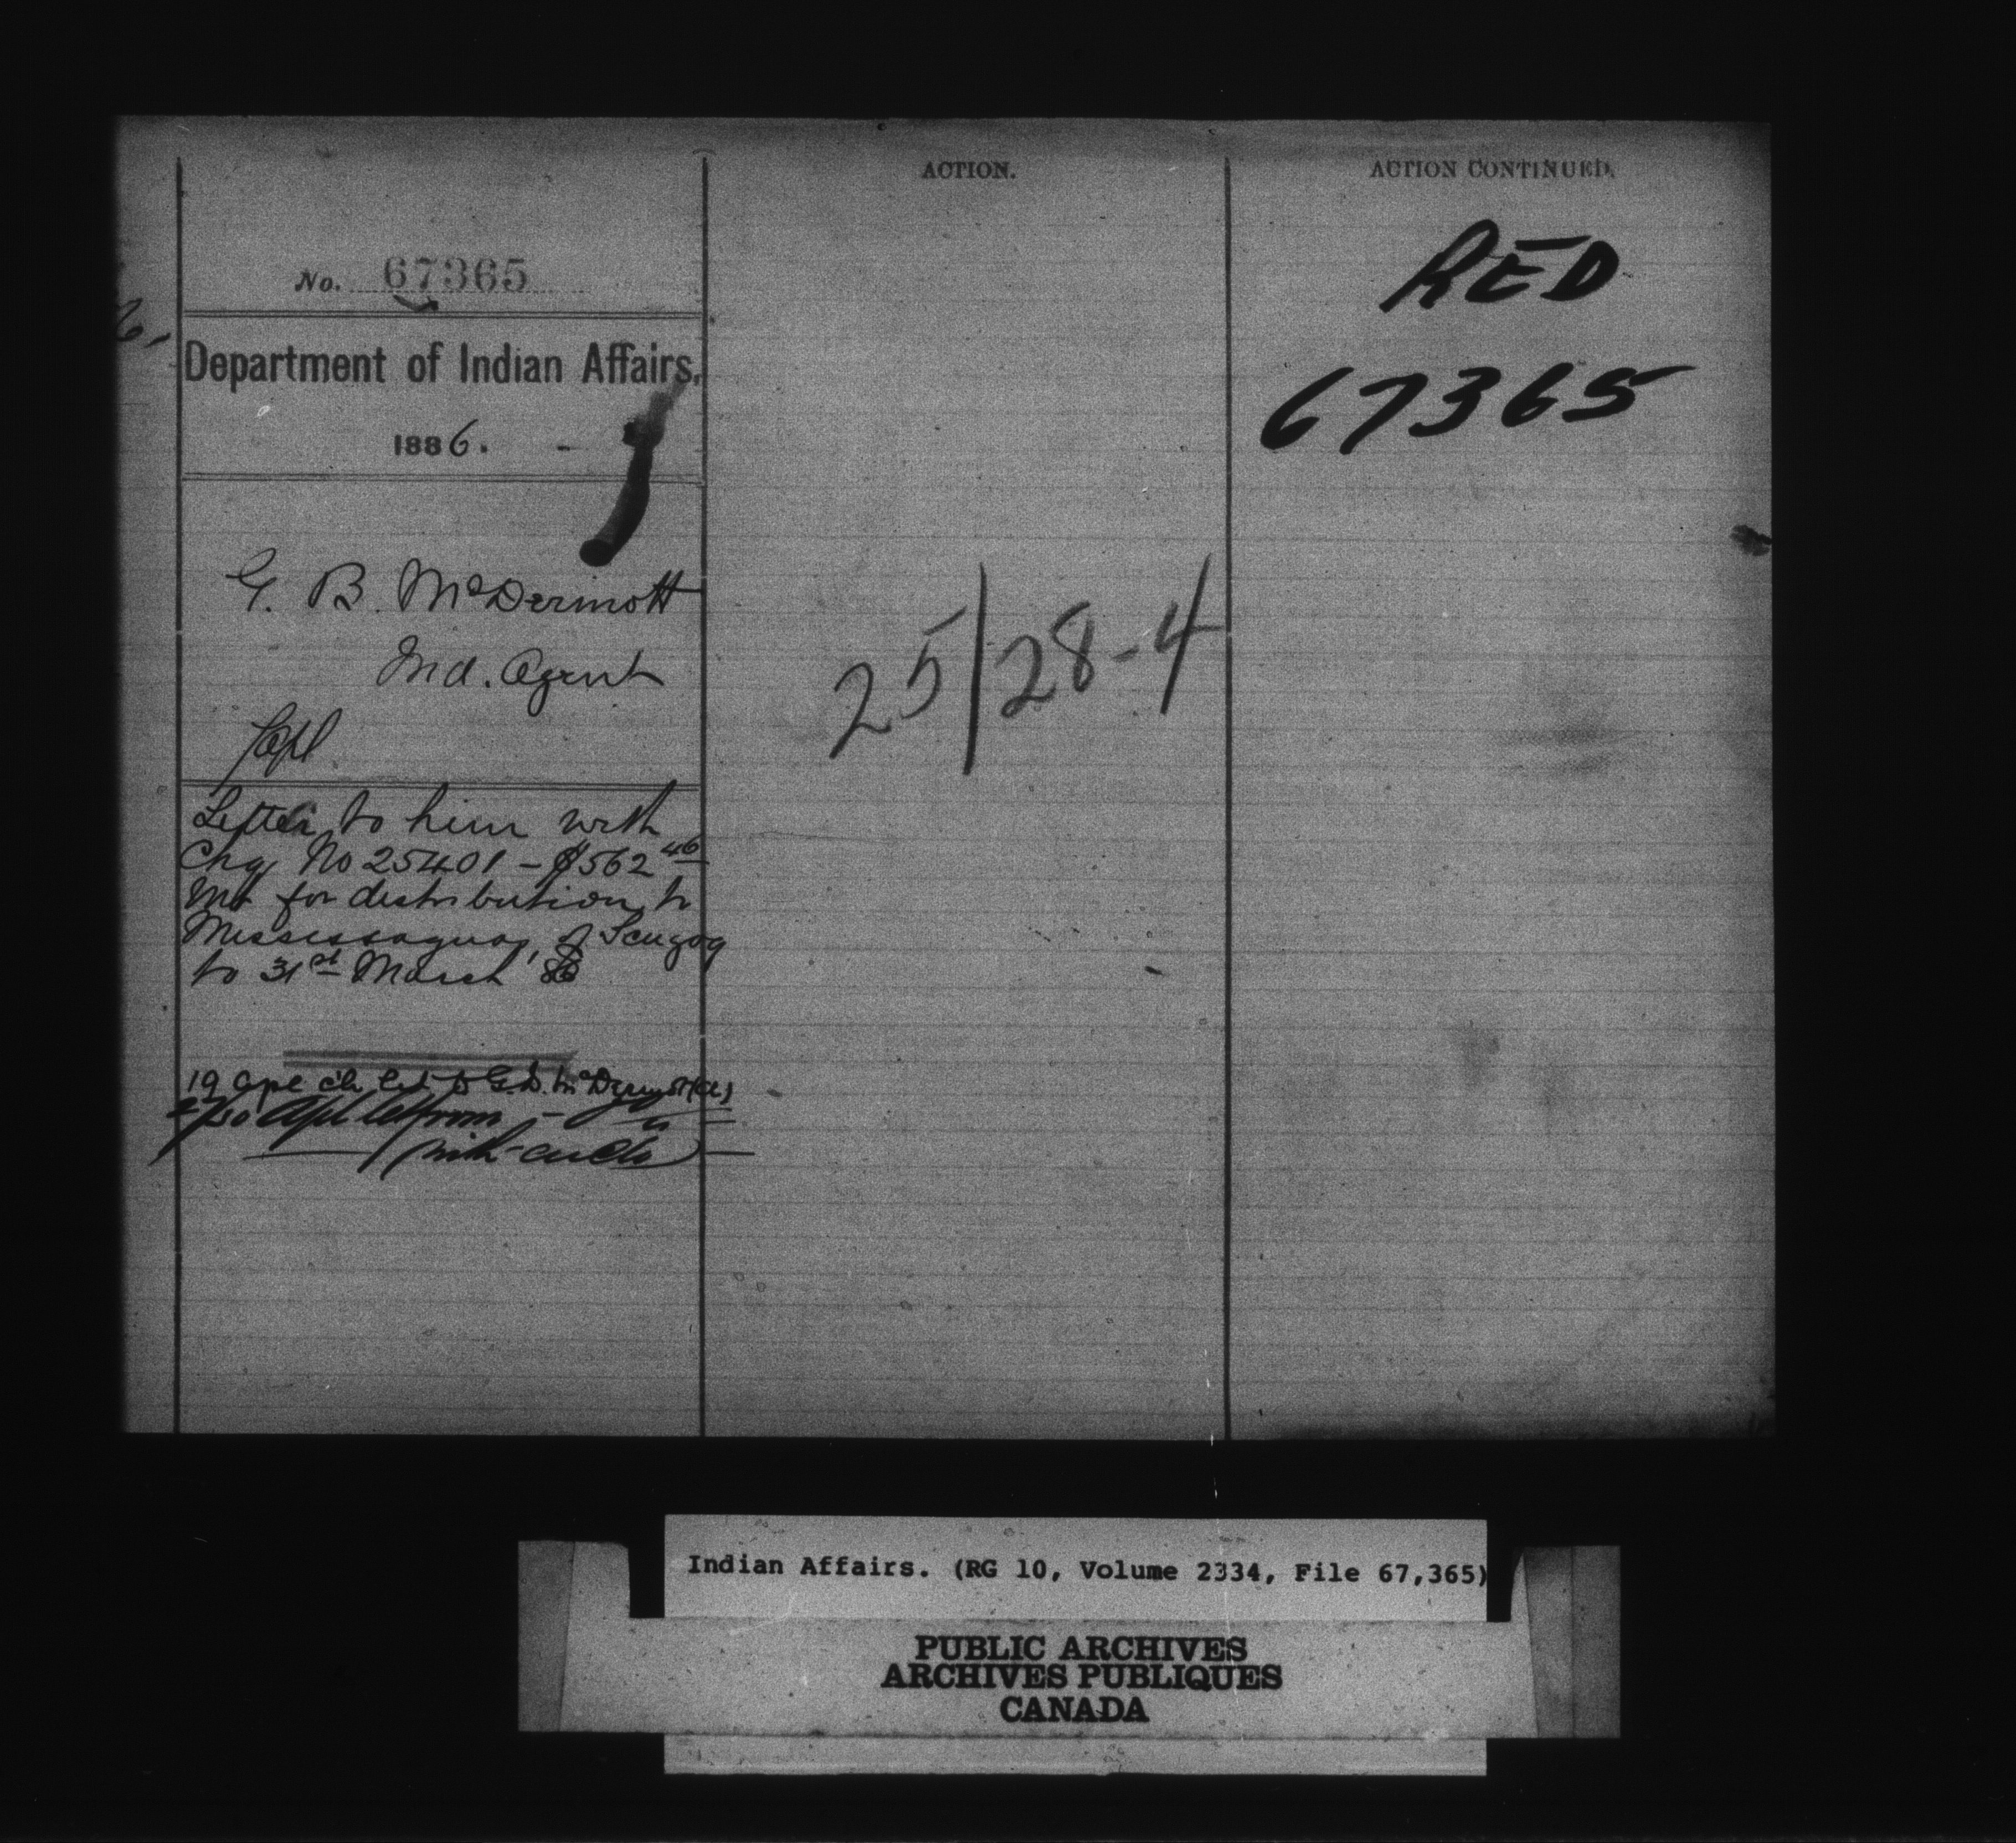 No. 67365
Department of Indian Affairs,
1886.
G. B. McDermott
Ind. Agent
Letter to him with
Chq No 25401 - $562 46
Int for distribution to
Mississaguas of Scugog
to 31st March '86
19 Apl ch let to G.B. McDermott
Apl let from
with
ACTION.
25/28-4
ACTION CONTINUED.
RED
67365
Indian Affairs. (RG 10, Volume 2334, File 67,365)
PUBLIC ARCHIVES
ARCHIVES PUBLIQUES
CANADA